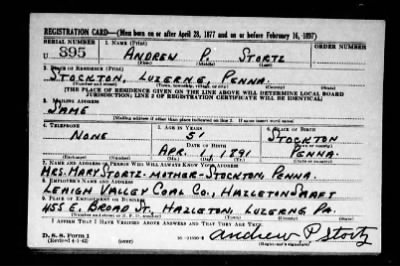 REGISTRATION CARD—(Men born on or after April 28, 1877 and on or before February 16, 1897)
SERIAL NUMBER 1. NAME (Print) ORDER NUMBER
U 395 ANDREW P. STORTZ
(First) (Middle) (Last)
2. PLACE OF RESIDENCE (Print)
STOCKTON, LUZERNE, PENNA.
(Number and street) (Town, township, village, or city) (County) (State)
[THE PLACE OF RESIDENCE GIVEN ON THE LINE ABOVE WILL DETERMINE LOCAL BOARD
JURISDICTION; LINE 2 OF REGISTRATION CERTIFICATE WILL BE IDENTICAL]
3. MAILING ADDRESS
SAME
[Mailing address if other than place indicated on line 2. If same insert word same]
4. TELEPHONE 5. AGE IN YEARS 6. PLACE OF BIRTH
NONE 51 STOCKTON
DATE OF BIRTH
APR. 1, 1891 PENNA.
(Exchange) (Number) (Mo.) (Day) (Yr.) (State or country)
7. NAME AND ADDRESS OF PERSON WHO WILL ALWAYS KNOW YOUR ADDRESS
MRS. MARY STORTZ-MOTHER-STOCKTON, PENNA.
8. EMPLOYER'S NAME AND ADDRESS
LEHIGH VALLEY COAL CO., HAZLETON SHAFT
9. PLACE OF EMPLOYMENT OR BUSINESS
455 E. BROAD ST. HAZLETON, LUZERNE PA.
(Number and street or R. F. D. number) (Town) (County) (State)
I AFFIRM THAT I HAVE VERIFIED ABOVE ANSWERS AND THAT THEY ARE TRUE.
D. S. S. Form 1
(Revised 4-1-42)
Andrew P Stortz
(Registrant's signature)